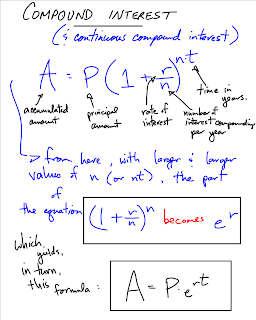 COMPOUND INTEREST
(& continuous compound interest)
A = P(1 + r/n)^n·t
accumulated amount
principal amount
rate of interest
number of interest compoundings per year
time in years.
→ from here, with larger & larger
values of n (or nt), the part
of
the equation (1 + r/n)^n becomes e^r
which,
in turn,
this formula:
A = P·e^rt